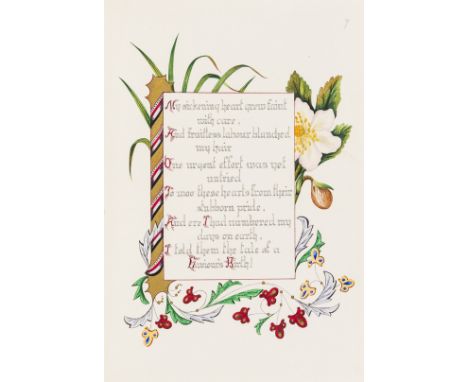 7
My sickening heart grew faint
with care.
And fruitless labour blanched
my hair
One urgent effort was yet
untried
To woo these hearts from their
stubborn pride.
And ere I had numbered my
days on earth,
I told them the tale of a
Saviour's Birth!